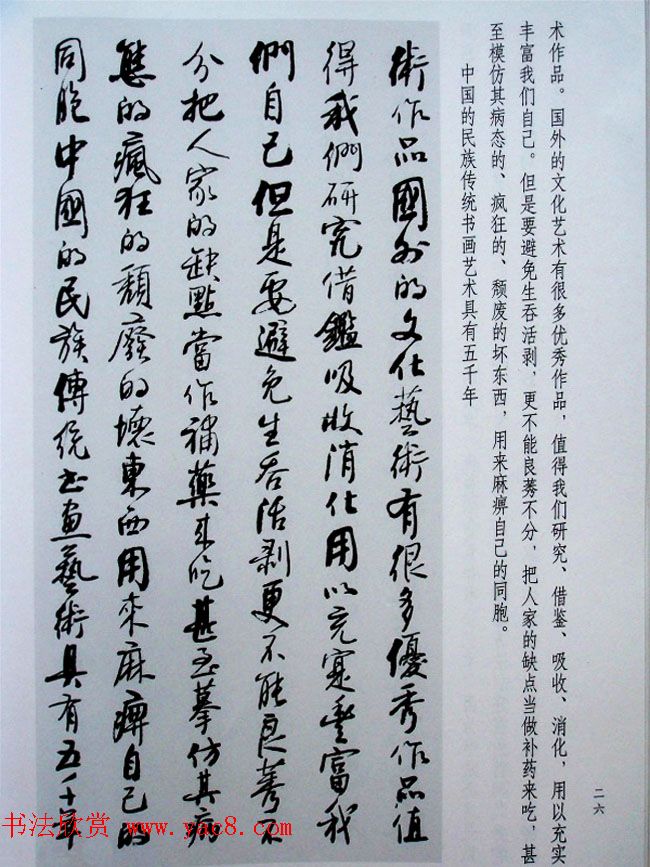 术作品。国外的文化艺术有很多优秀作品，值得我们研究、借鉴、吸收、消化，用以充实
丰富我们自己。但是要避免生吞活剥，更不能良莠不分，把人家的缺点当做补药来吃，甚
至模仿其病态的、疯狂的、颓废的坏东西，用来麻痹自己的同胞。
中国的民族传统书画艺术具有五千年
二六
術作品國外的文化藝術有很多優秀作品值
得我們研究借鑑吸收消化用以充寔豐富我
們自己但是要避免生吞活剥更不能良莠不
分把人家的缺點當作補藥來吃甚至摹仿其病
態的瘋狂的頹廢的壞東西用來麻痺自己的
同胞中國的民族傳統书畫藝術具有五千年
书法欣赏 www.yac8.com